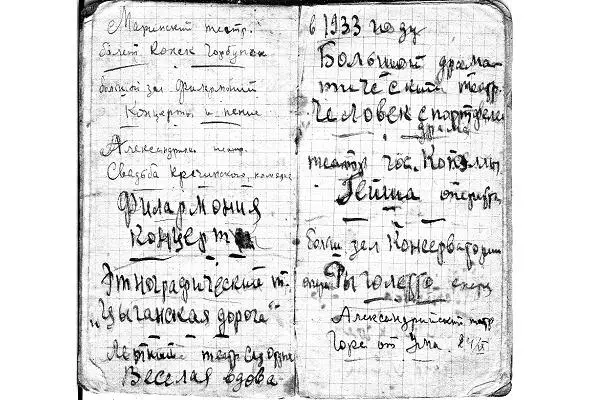 Мариинский театр.
балет Конек Горбунок
большой зал Филармоний
Концерты и пение
Александрин. театр.
Свадьба Кречинского, комедия
Филармония
Концерт
Этнографический т.
„Цыганская дорога“
Летний театр Сад Отдыха
Веселая вдова
в 1933 году
Большой драма-
тический театр.
Человек с портфелем
драма
театр гос.
Гейша оперетта
Больш зал Консерватории
опера Рыголетто
Александрийский театр
Горе от Ума.